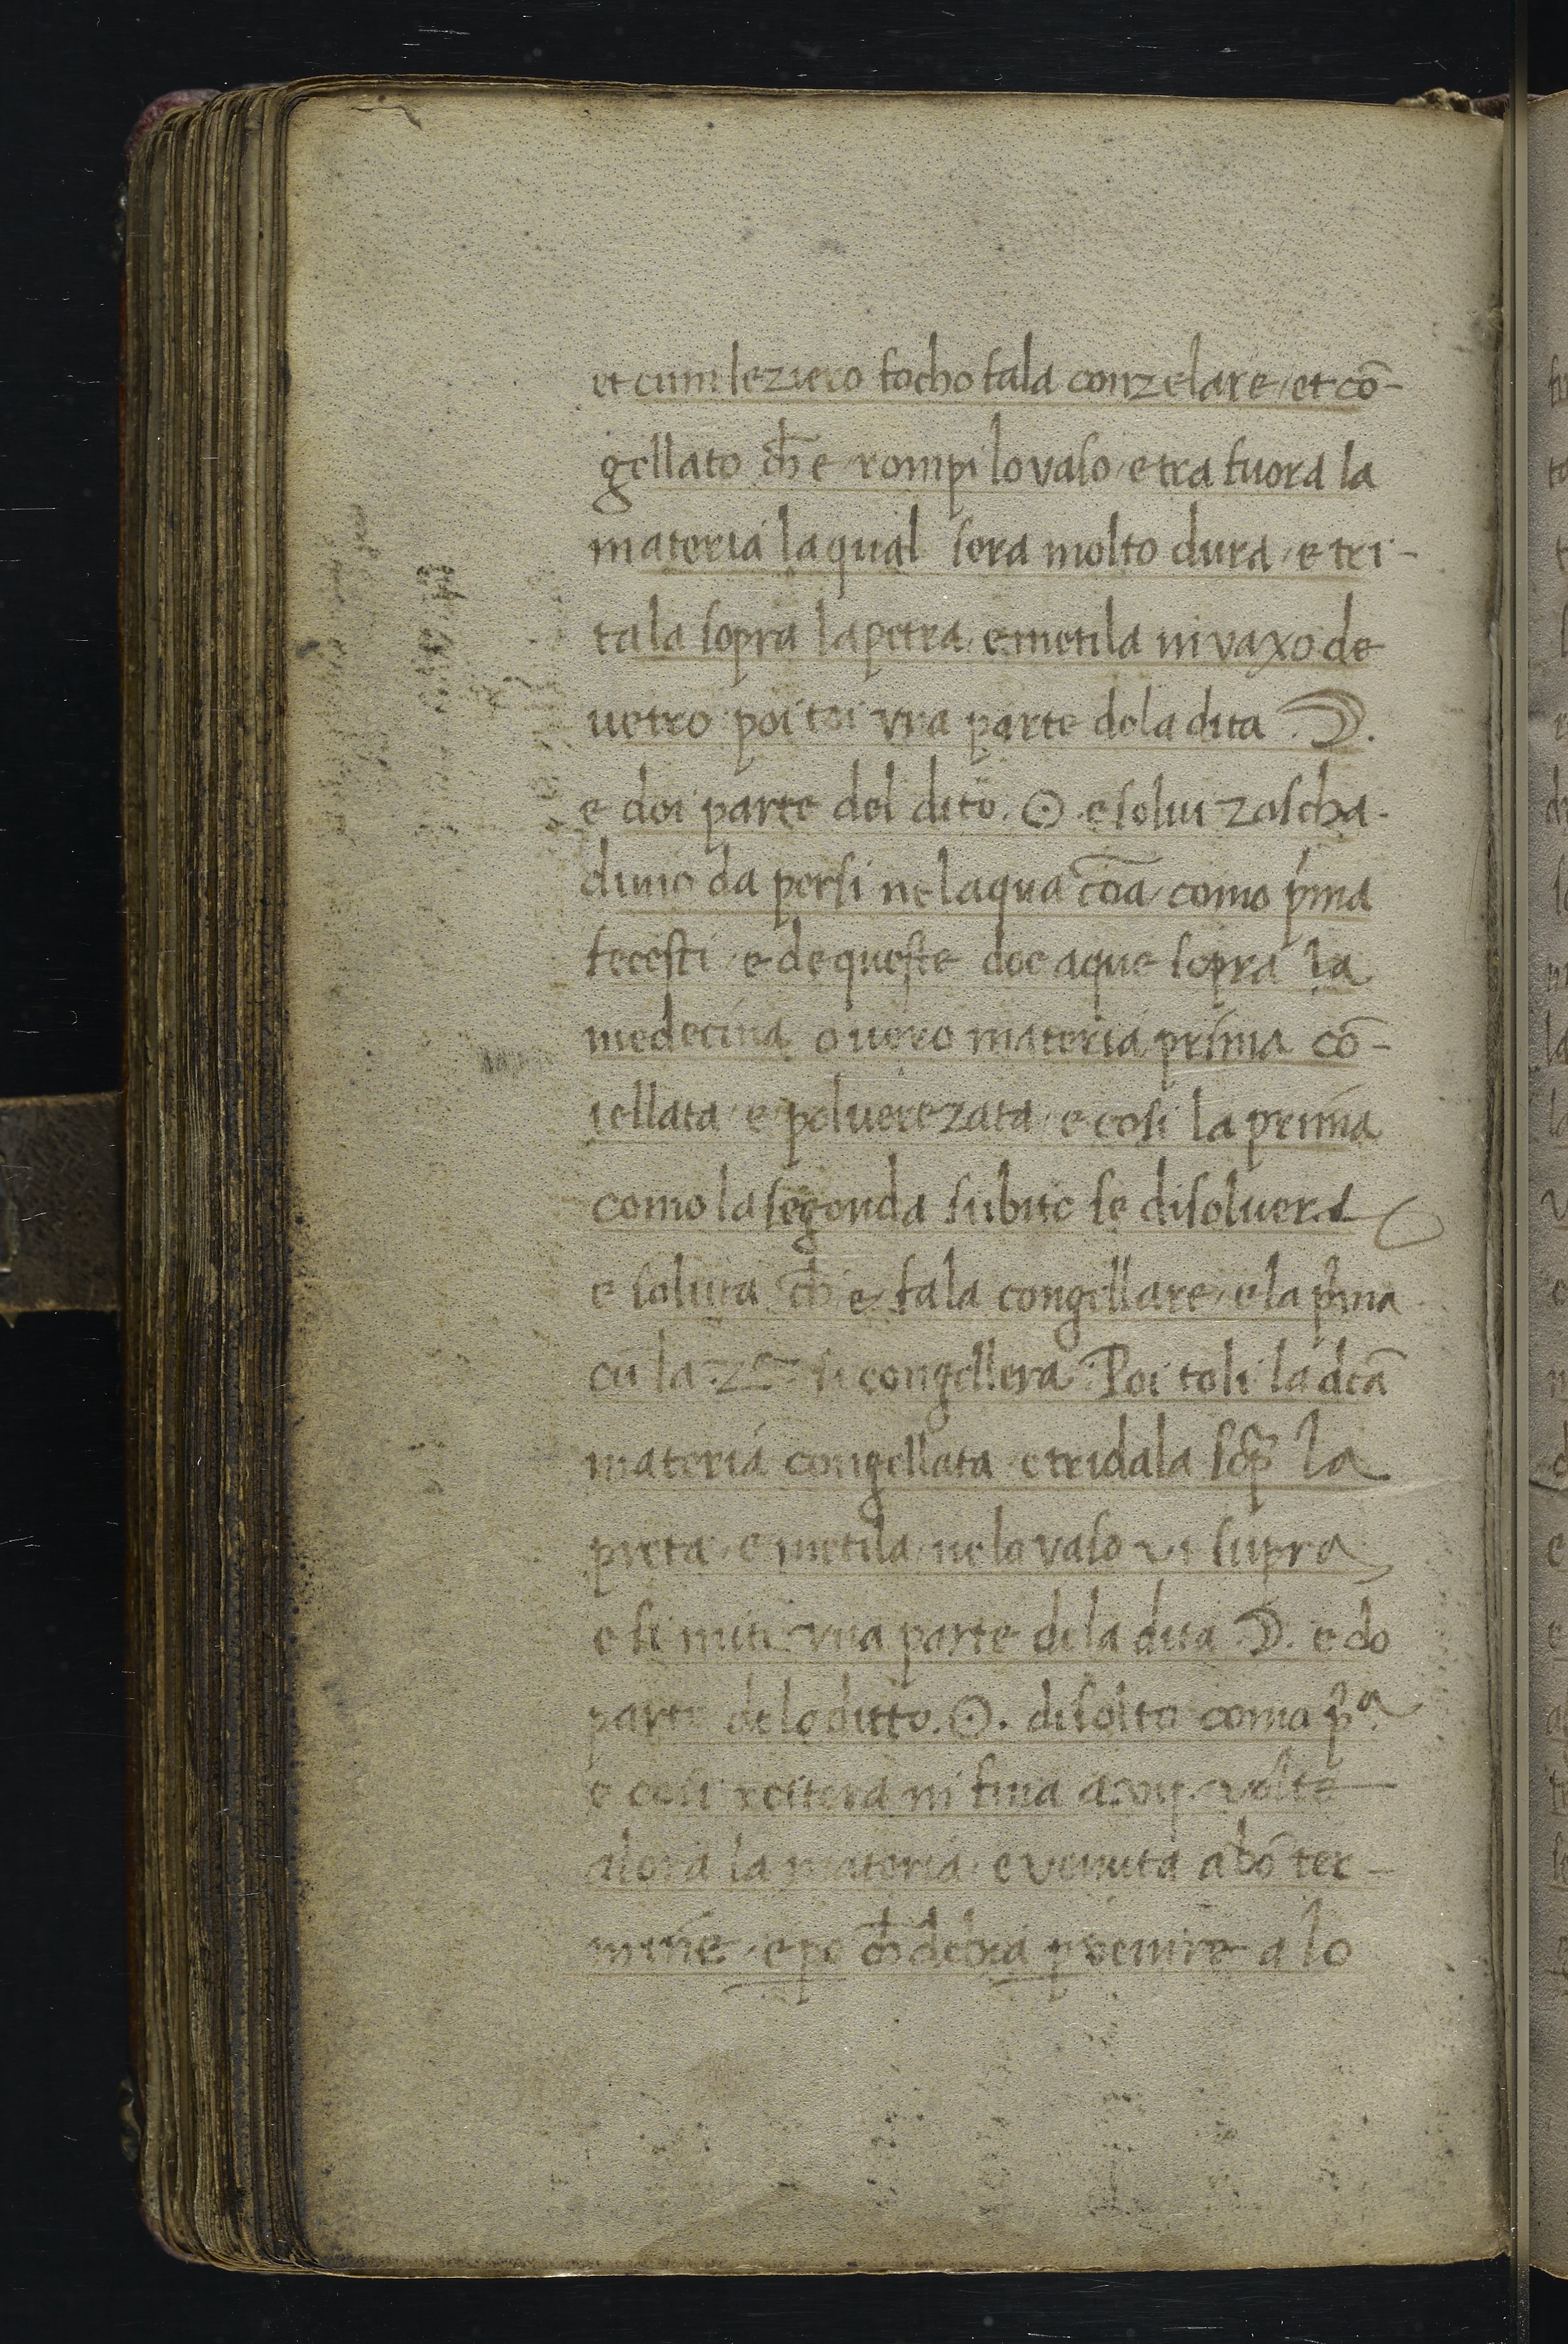 et cum leziero focho fala conzelare / et cō-
gellato ch̄ e / rompi lo vaso / e tra fuora la
materia la qual sera molto dura / e tri-
tala sopra la petra / e metila ni vaxo de
vetro poi toi vna parte dela dita .☽.
e doi parte del dito .☉. e solui zascha-
duno da persi ne laqua cōa / como pͥma
fecesti / e de queste doe aque sopra la
medecina ouero materia prima cō-
iellata / e poluerezata / e cosi la prima
como la segonda subito se disoluera
e soluta ch̄ e / fala congellare / e la pͥma
cū la .2ª. si congellera. Poi toli la dc̄a
materia congellata / e tridala sop̄ la
preta / e metila / ne lo vaso vt supra
e si miti vna parte dela dita .☽. e do
parte de lo ditto .☉. disolto como pª.
e cosi reitera ni fina a .vij. volte
alora la materia / e venuta a bō ter-
mine / e po ch̄ debia ꝑvenire a lo